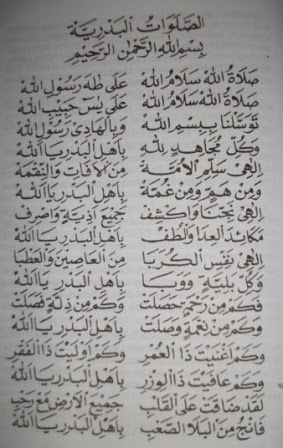 الصَّلَوَاتُ الْبَدْرِيَّةُ
بِسْمِ اللهِ الرَّحْمٰنِ الرَّحِيْمِ
صَلَاةُ اللهْ سَلَامُ اللهْ عَلَى طٰهَ رَسُوْلِ اللهْ
صَلَاةُ اللهْ سَلَامُ اللهْ عَلَى يٰسٓ حَبِيْبِ اللهْ
تَوَسَّلْنَا بِبِسْمِ اللهْ وَبِالْهَادِيْ رَسُوْلِ اللهْ
وَكُلِّ مُجَاهِدٍ لِلّٰهْ بِاَهْلِ الْبَدْرِ يَا اَللهْ
اِلٰهِيْ سَلِّمِ الْاُمَّةْ مِنَ الْاٰفَاتِ وَالنِّقْمَةْ
وَمِنْ هَمٍّ وَمِنْ غُمَّةْ بِاَهْلِ الْبَدْرِ يَا اَللهْ
اِلٰهِيْ نَجِّنَا وَاكْشِفْ جَمِيْعَ اَذِيَّةٍ وَاصْرِفْ
مَكَائِدَ الْعِدَا وَالْطُفْ بِاَهْلِ الْبَدْرِ يَا اَللهْ
اِلٰهِيْ نَفِّسِ الْكُرَبَا مِنَ الْعَاصِيْنَ وَالْعَطْبَا
وَكُلِّ بَلِيَّةٍ وَوَبَا بِاَهْلِ الْبَدْرِ يَا اَللهْ
فَكَمْ مِنْ رَحْمَةٍ حَصَلَتْ وَكَمْ مِنْ ذِلَّةٍ فَصَلَتْ
وَكَمْ مِنْ نِعْمَةٍ وَصَلَتْ بِاَهْلِ الْبَدْرِ يَا اَللهْ
وَكَمْ اَغْنَيْتَ ذَا الْعُمْرِ وَكَمْ اَوْلَيْتَ ذَا الْفَقْرِ
وَكَمْ عَافَيْتَ ذَا الْوِزْرِ بِاَهْلِ الْبَدْرِ يَا اَللهْ
لَقَدْ ضَاقَتْ عَلَى الْقَلْبِ جَمِيْعُ الْاَرْضِ مَعْ رَحْبِ
فَانْجِ مِنَ الْبَلَا الصَّعْبِ بِاَهْلِ الْبَدْرِ يَا اَللهْ